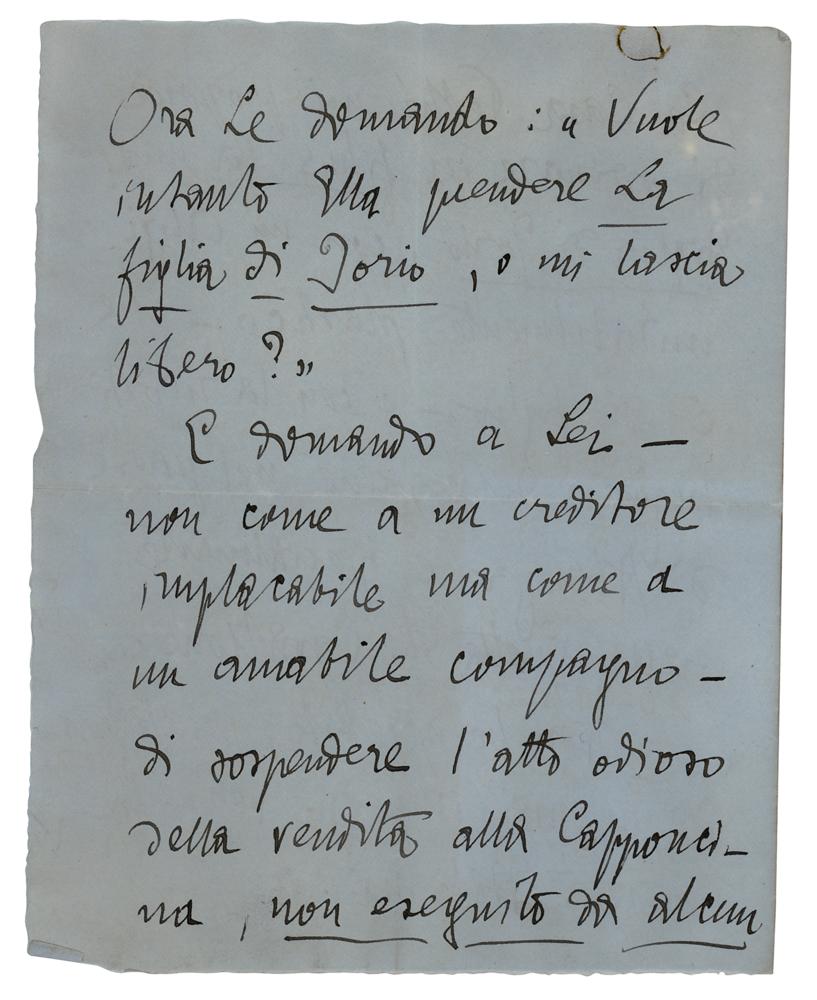 Ora Le domando : „ Vuole
intanto Ella prendere La
figlia di Jorio , o mi lascia
libero ? „
E domando a Lei —
non come a un creditore
implacabile ma come a
un amabile compagno —
di sospendere l'atto odioso
della vendita alla Capponci-
na , non eseguito da alcun